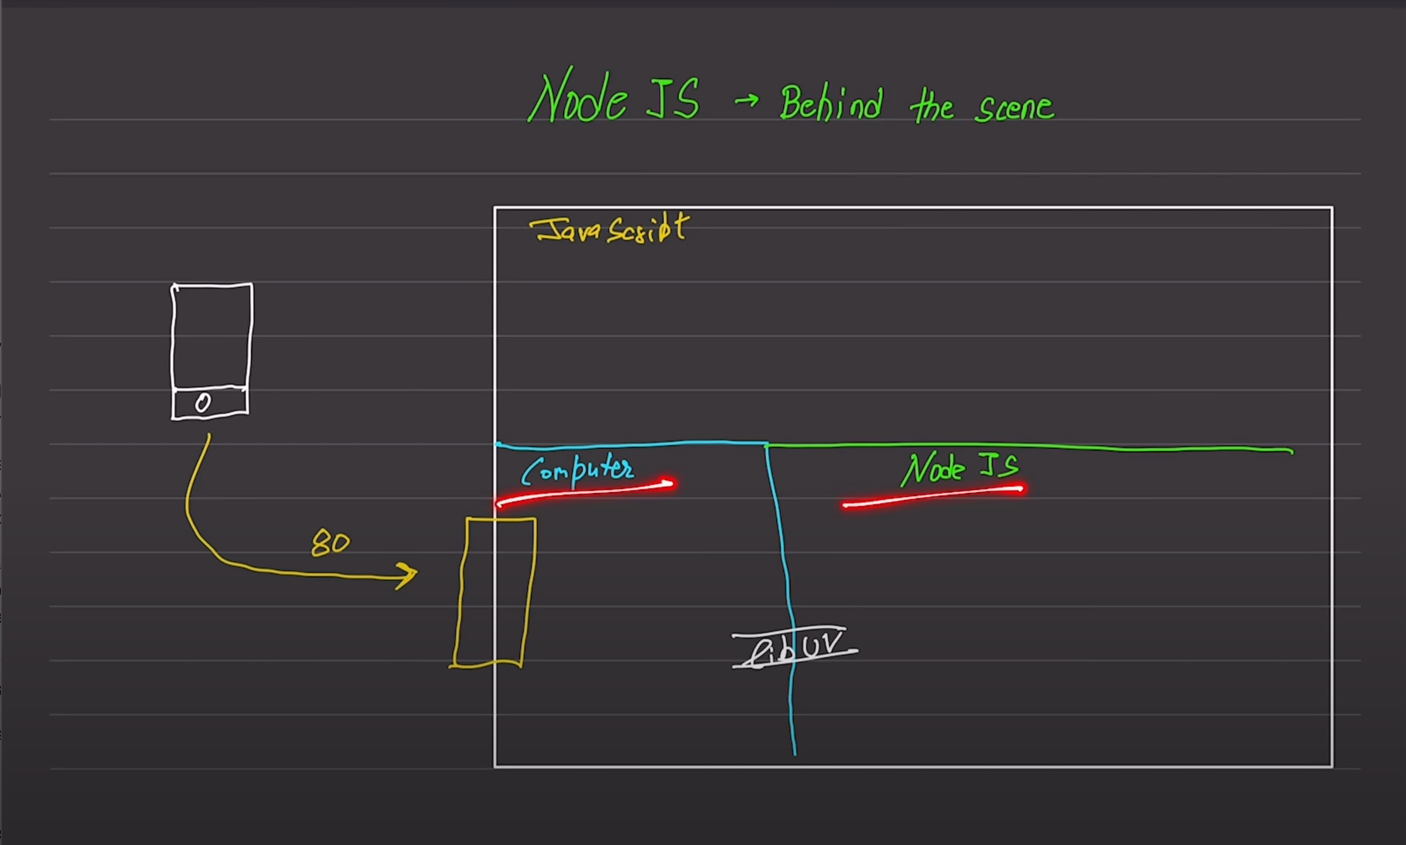 Node JS → Behind the scene
JavaScript
Computer
Node JS
80
libUV